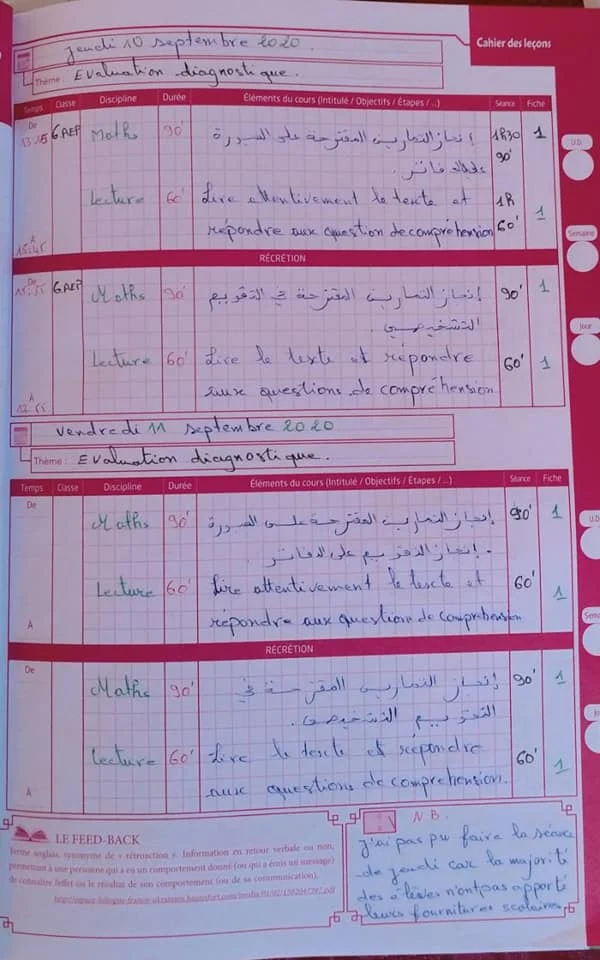 jeudi 10 septembre 2020.
Cahier des leçons
Thème : Evaluation diagnostique.
Temps Classe Discipline Durée Éléments du cours (Intitulé / Objectifs / Étapes / ..) Séance Fiche
De 13:15 6AEP Maths 90' إنجاز التمارين المقترحة على السبورة 1h30 1
90'
Lecture 60' Lire attentivement le texte et 1h 1
répondre aux question de compréhension 60'
A 15:45
RÉCRÉTION
De 15:55 6AEP Maths 90' إنجاز التمارين المقترحة في التقويم 90' 1
التشخيصي.
Lecture 60' Lire le texte et répondre 60' 1
aux questions de compréhension
A
vendredi 11 septembre 2020
Thème : Evaluation diagnostique.
Temps Classe Discipline Durée Éléments du cours (Intitulé / Objectifs / Étapes / ..) Séance Fiche
De Maths 90' إنجاز التمارين المقترحة على السبورة 90' 1
إنجاز التقويم على الدفاتر.
Lecture 60' Lire attentivement le texte et 60' 1
A répondre aux question de compréhension
RÉCRÉTION
De Maths 90' إنجاز التمارين المقترحة في 90' 1
التقويم التشخيصي.
Lecture 60' Lire le texte et répondre 60' 1
A aux questions de compréhension.
U.D
Semaine
Jour
U.D
LE FEED-BACK
Terme anglais, synonyme de « rétroaction ». Information en retour verbale ou non,
permettant à une personne qui a eu un comportement donné (ou qui a émis un message)
de connaître l'effet ou le résultat de son comportement (ou de sa communication).
N.B.
j'ai pas pu faire la séance
de jeudi car la majorité
des élèves n'ont pas apporté
leurs fournitures scolaires.